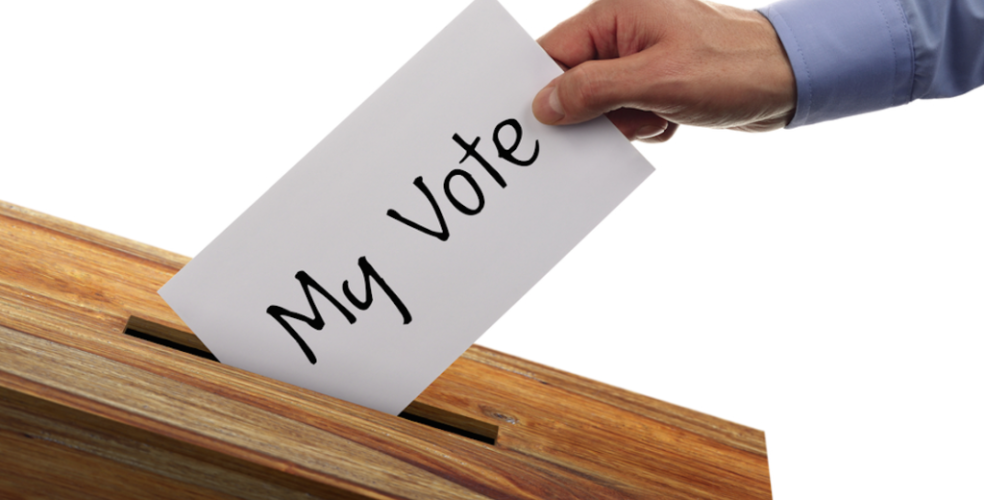 My Vote